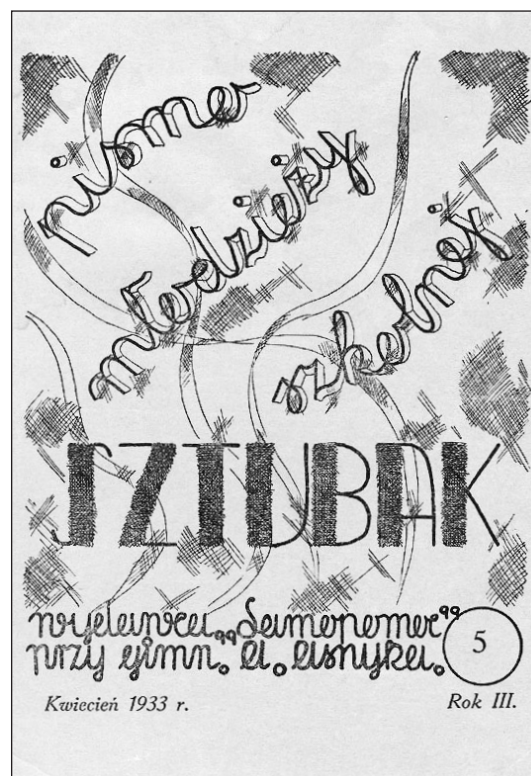 pismo
młodzieży
szkolnej
SZTUBAK
wydawca „Samopomoc”
przy gimn. A. Asnyka.
5
Kwiecień 1933 r.
Rok III.